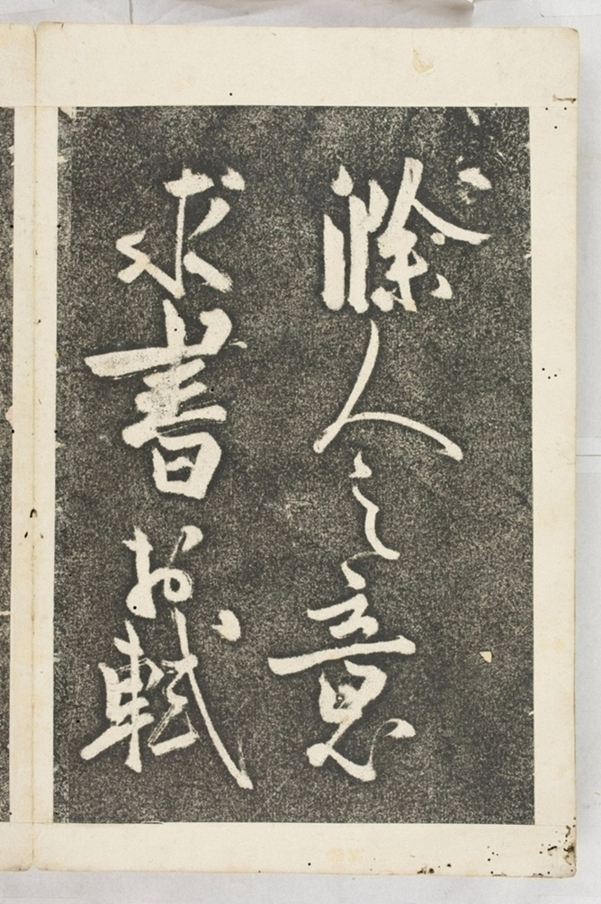 滁人之意
求書於軾